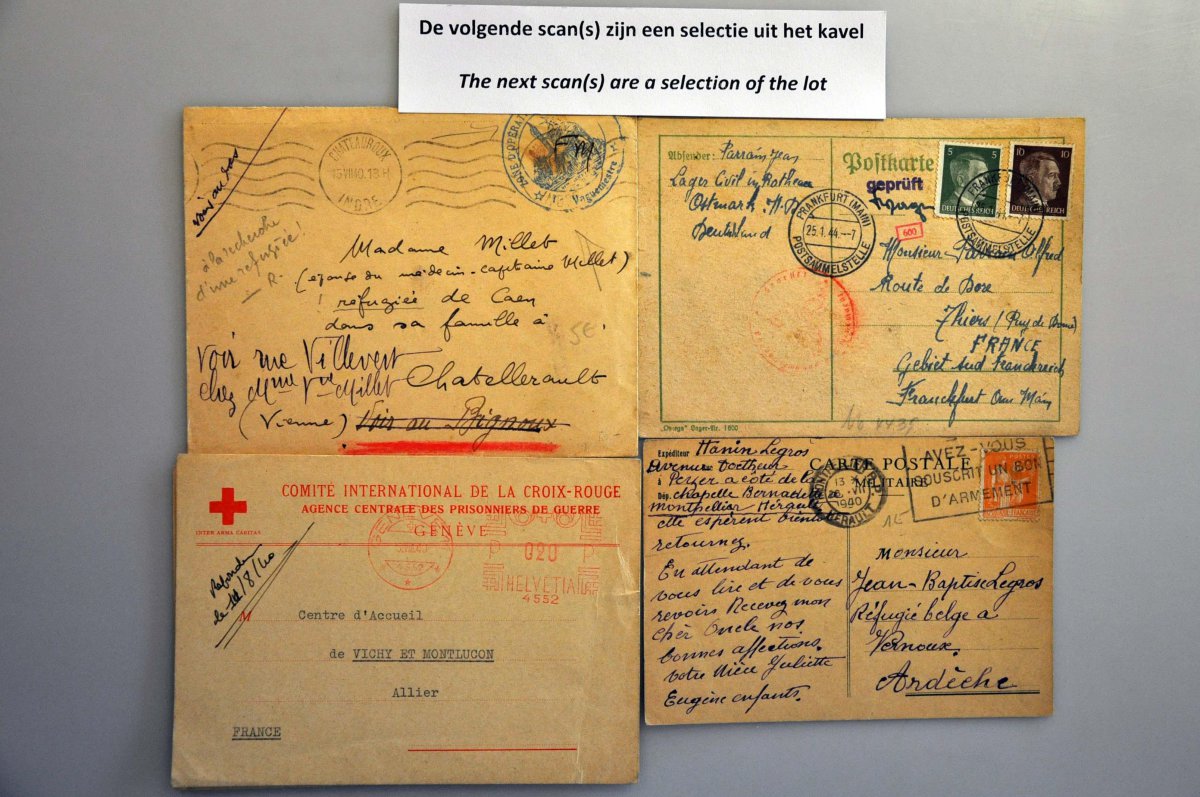 De volgende scan(s) zijn een selectie uit het kavel
The next scan(s) are a selection of the lot
CHATEAUROUX
INDRE
ZONE D'OPÉRA
Vaguemestre
Fm
à la recherche
d'une refugiée!
R.
Madame Millet
(épouse du médecin-capitaine Millet)
réfugiée de Caen
dans sa famille à
5€
Voir rue Villevert
chez Mme Vve Millet
Chatellerault
(Vienne)
Voir au Bignoux
Absender: Parrain Jean
Postkarte
geprüft
Lager Civil in
Ostmark
Deutschland
5
5
DEUTSCHES REICH
10
10
DEUTSCHES REICH
FRANKFURT (MAIN)
25.1.44.--7
POSTSAMMELSTELLE
FRANKFURT (MAIN)
POSTSAMMELSTELLE
600
Monsieur Parrain Alfred
Route de Bore
Thiers (Puy de Dôme)
FRANCE
Gebiet sud Frankreich
Franckfurt Am Main
COMITÉ INTERNATIONAL DE LA CROIX-ROUGE
AGENCE CENTRALE DES PRISONNIERS DE GUERRE
GENÈVE
INTER ARMA CARITAS
020
HELVETIA
4552
M
Centre d'Accueil
de VICHY ET MONTLUCON
Allier
FRANCE
Expéditeur Hanin Legros
CARTE POSTALE
MILITAIRE
à
Dép.
chapelle Bernadette
montpellier Hérault
1940
HERAULT
AVEZ-VOUS
SOUSCRIT UN BON
D'ARMEMENT
1€
retournez.
En attendant de
vous lire et de vous
revoirs Recevez mon
chèr Oncle nos
bonnes affections.
votre Nièce Juliette
Eugène enfants.
Monsieur
Jean-Baptise Legros
Réfugié belge à
Vernoux.
Ardèche